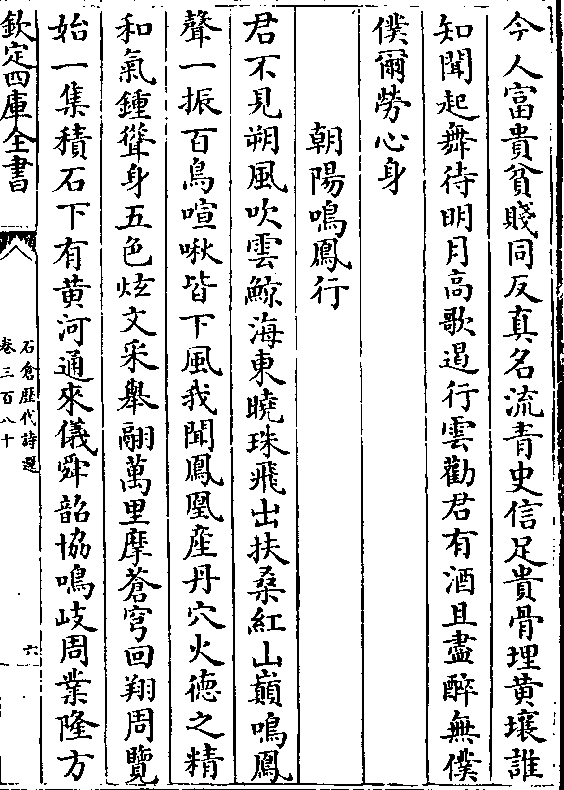 今人富貴貧賤同反真名流青史信足貴骨埋黄壤誰
知聞起舞待明月高歌遏行雲勸君有酒且盡醉無僕
僕爾勞心身
朝陽鳴鳳行
君不見朔風吹雲鯨海東曉珠飛出扶桑紅山巔鳴鳳
聲一振百鳥喧啾皆下風我聞鳳凰産丹穴火徳之精
和氣鍾聳身五色炫文采舉翮萬里摩蒼穹回翔周覽
始一集積石下有黄河通來儀舜韶協鳴岐周業隆方
欽定四庫全書
石倉歴代詩選
卷三百八十
六